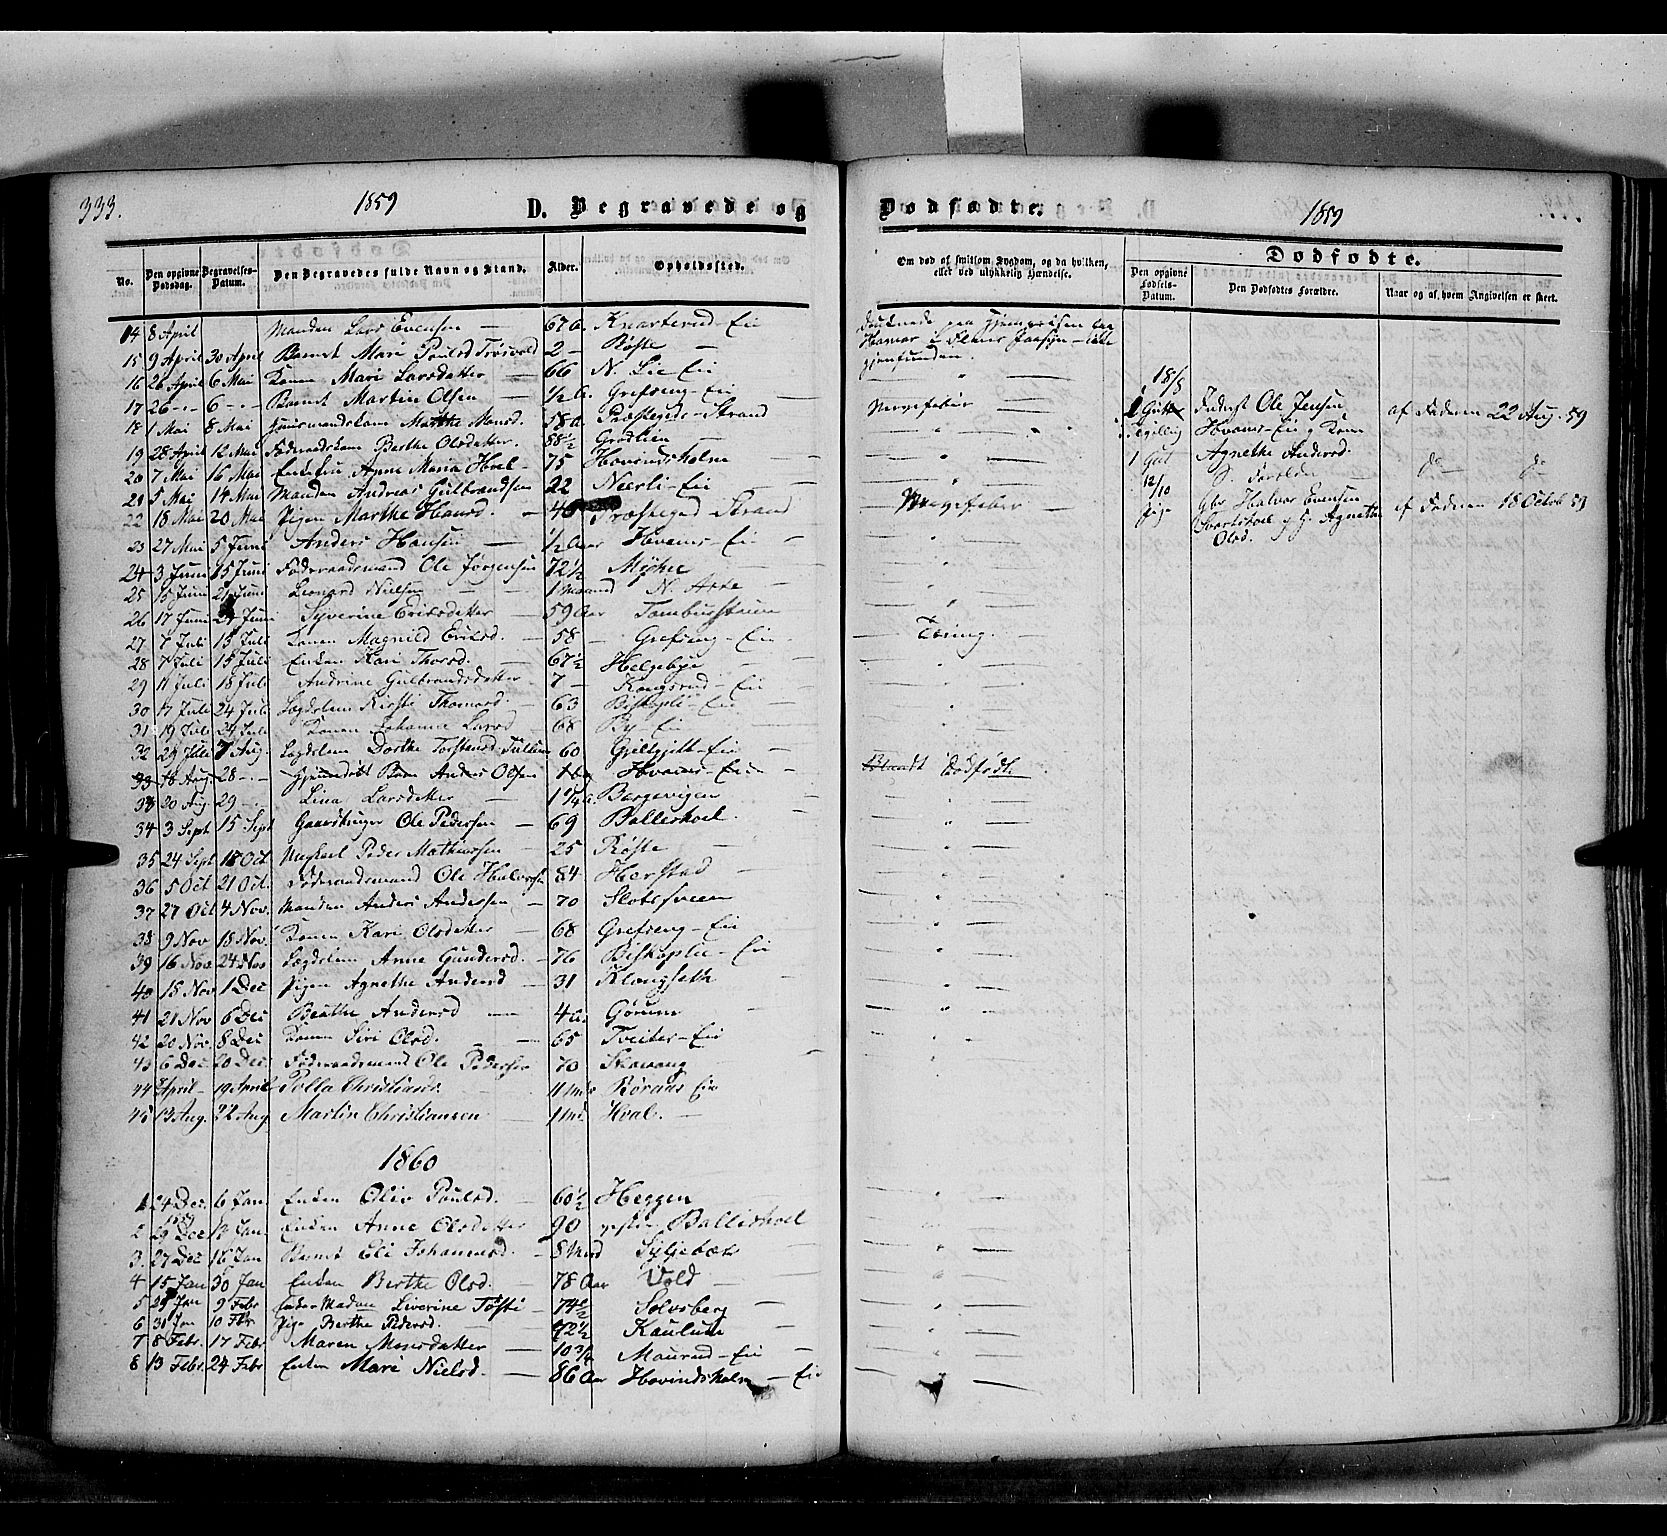 333.
1859
D. Begravede og
No.
Den opgivne Dødsdag.
Begravelses-Datum.
Den Begravedes fulde Navn og Stand.
Alder.
Opholdssted.
14 8 April Manden Lars Evensen — 67 a. Knarterud-Eie
15 9 April 30 April Barnet Mari Poulsd. 2 — Røste —
16 26 April 6 Mai Konen Mari Larsdatter — 66 N. Lie Eie
17 26 -"- 6 -"- Barnet Martin Olsen — ½ a. Grefseng-Eie
18 1 Mai 8 Mai Huusmandskone Marthe Monsd. 58 a. Præstegds-Strand
19 28 April 12 Mai Føderaadskone Berthe Olsdatter. 88½ Grødlien —
20 7 Mai 16 Mai Enkefru Anne Maria Hoel - 75 Hovindsholm —
21 5 Mai 14 Mai Manden Andreas Gulbrandsen 22 Neerli-Eie —
22 18 Mai 20 Mai Pigen Marthe Hansd. — 40 Præstegd Strand
23 27 Mai 5 Juni Anders Hansen — ½ Aar Hvams-Eie —
24 3 Juni 15 Juni Føderaadsmand Ole Jørgensen 72½ —
25 15 Juni Juni Leonard Nielsen — 1 Maaned N.
26 17 Juni Juni Syverine Eriksdatter 59 Aar
27 7 Juli 15 Juli Konen Magnild Eriksd. — 58 — Grefseng-Eie
28 7 Juli 15 Juli Enken Kari Thorsd. — 67½ Helgebye —
29 11 Juli 18 Juli Andrine Gulbrandsdatter 7 — Kongsrud-Eie
30 17 Juli 24 Juli Lægdslem Kirsti Thomasd. — 63 Biskoplie-Eie
31 19 Juli 24 Juli Konen Johanne Larsd 68 By-Eie
32 29 Juli 7 Aug. Lægdslem Dorthe Torstensd. 60 -Eie
33 18 Aug 28 -"- Barn Anders Olsen Hvams-Eie —
33 20 Aug 29 -"- Lina Larsdatter — 1 ¼ a. Bergevigen —
34 3 Sept 15 Sept Ole Pedersen — 69 Ballishoel.
35 24 Sept 18 Oct Ungkarl Peder Mathiassen — 25 Røste —
36 5 Oct 21 Oct. Føderaadsmand Ole Halvorsen 84 Herstad —
37 27 Oct 4 Nov. Manden Anders Andersen — 70 Slotssveen
38 9 Nov 18 Nov. Konen Kari Olsdatter — 68 Grefseng-Eie
39 16 Nov 24 Nov Lægdslem Anne Gundersd. — 76 Biskoplie-Eie
40 15 Nov 1 Dec Pigen Agnethe Andersd 31 Klongseth
41 21 Nov 6 Dec Beathe Andersd — 4 a. —
42 20 Nov 8 Dec Konen Siri Olsd. — 65 Tveiter-Eie
43 6 Dec 20 Dec Føderaadsmand Ole Pedersen 70 —
44 April — 19 April Christians. 11 Eie
45 13 Aug. 22 Aug Martin Christiansen 1 Md. Hval. —
1860
1 24 Dec. 6 Jan Enken Oliv Poulsd. — 60½ Heggen
1859
2 29 Dec 12 Jan Enken Anne Olsdatter 90 vestre Ballishoel
3. 27 Dec 16 Jan Barnet Eli Johannesd. — 8 Mnd
4 15 Jan 30 Jan Enken Berthe Olsd. — 78 Aar Vold —
5 Jan 9 Febr Enke Madam Severine Tøsti — 74½ Solvsberg —
6 31 Jan 10 Fbr Pige Berthe Pedersd. — 72½ Kaulum —
7 8 Febr. 17 Febr Maren Monsdatter — 10¾ Maurud-Eie —
8 13 Febr. 24 Febr Enken Mari Nielsd. — 86 Aar Hovindsholm — Eie
Dødfødte.
1859
Om død af smitsom Sygdom, og da hvilken,
eller ved ulykkelig Hændelse.
Dødfødte.
Den opgivne Fødsels-Datum.
Den Dødfødtes Forældre.
Naar og af, hvem Angivelsen er skeet.
Druknede paa Hjemreisen fra
Hamar — ikke
gjenfunden.
Nervefeber —
— Nervefeber —
— Tæring. —
iblandt dødfødte
18/8
1 Gut Inderst Ole Jensen af Faderen 22 Aug. 59
Hvams-Eie og Kone
1 Gut Agnethe Andersd.
S. Forældre do — do
12/10
Pige Gbr Halvor Evensen af Faderen 18 Octob 59
og H. Agnethe
Olsd.